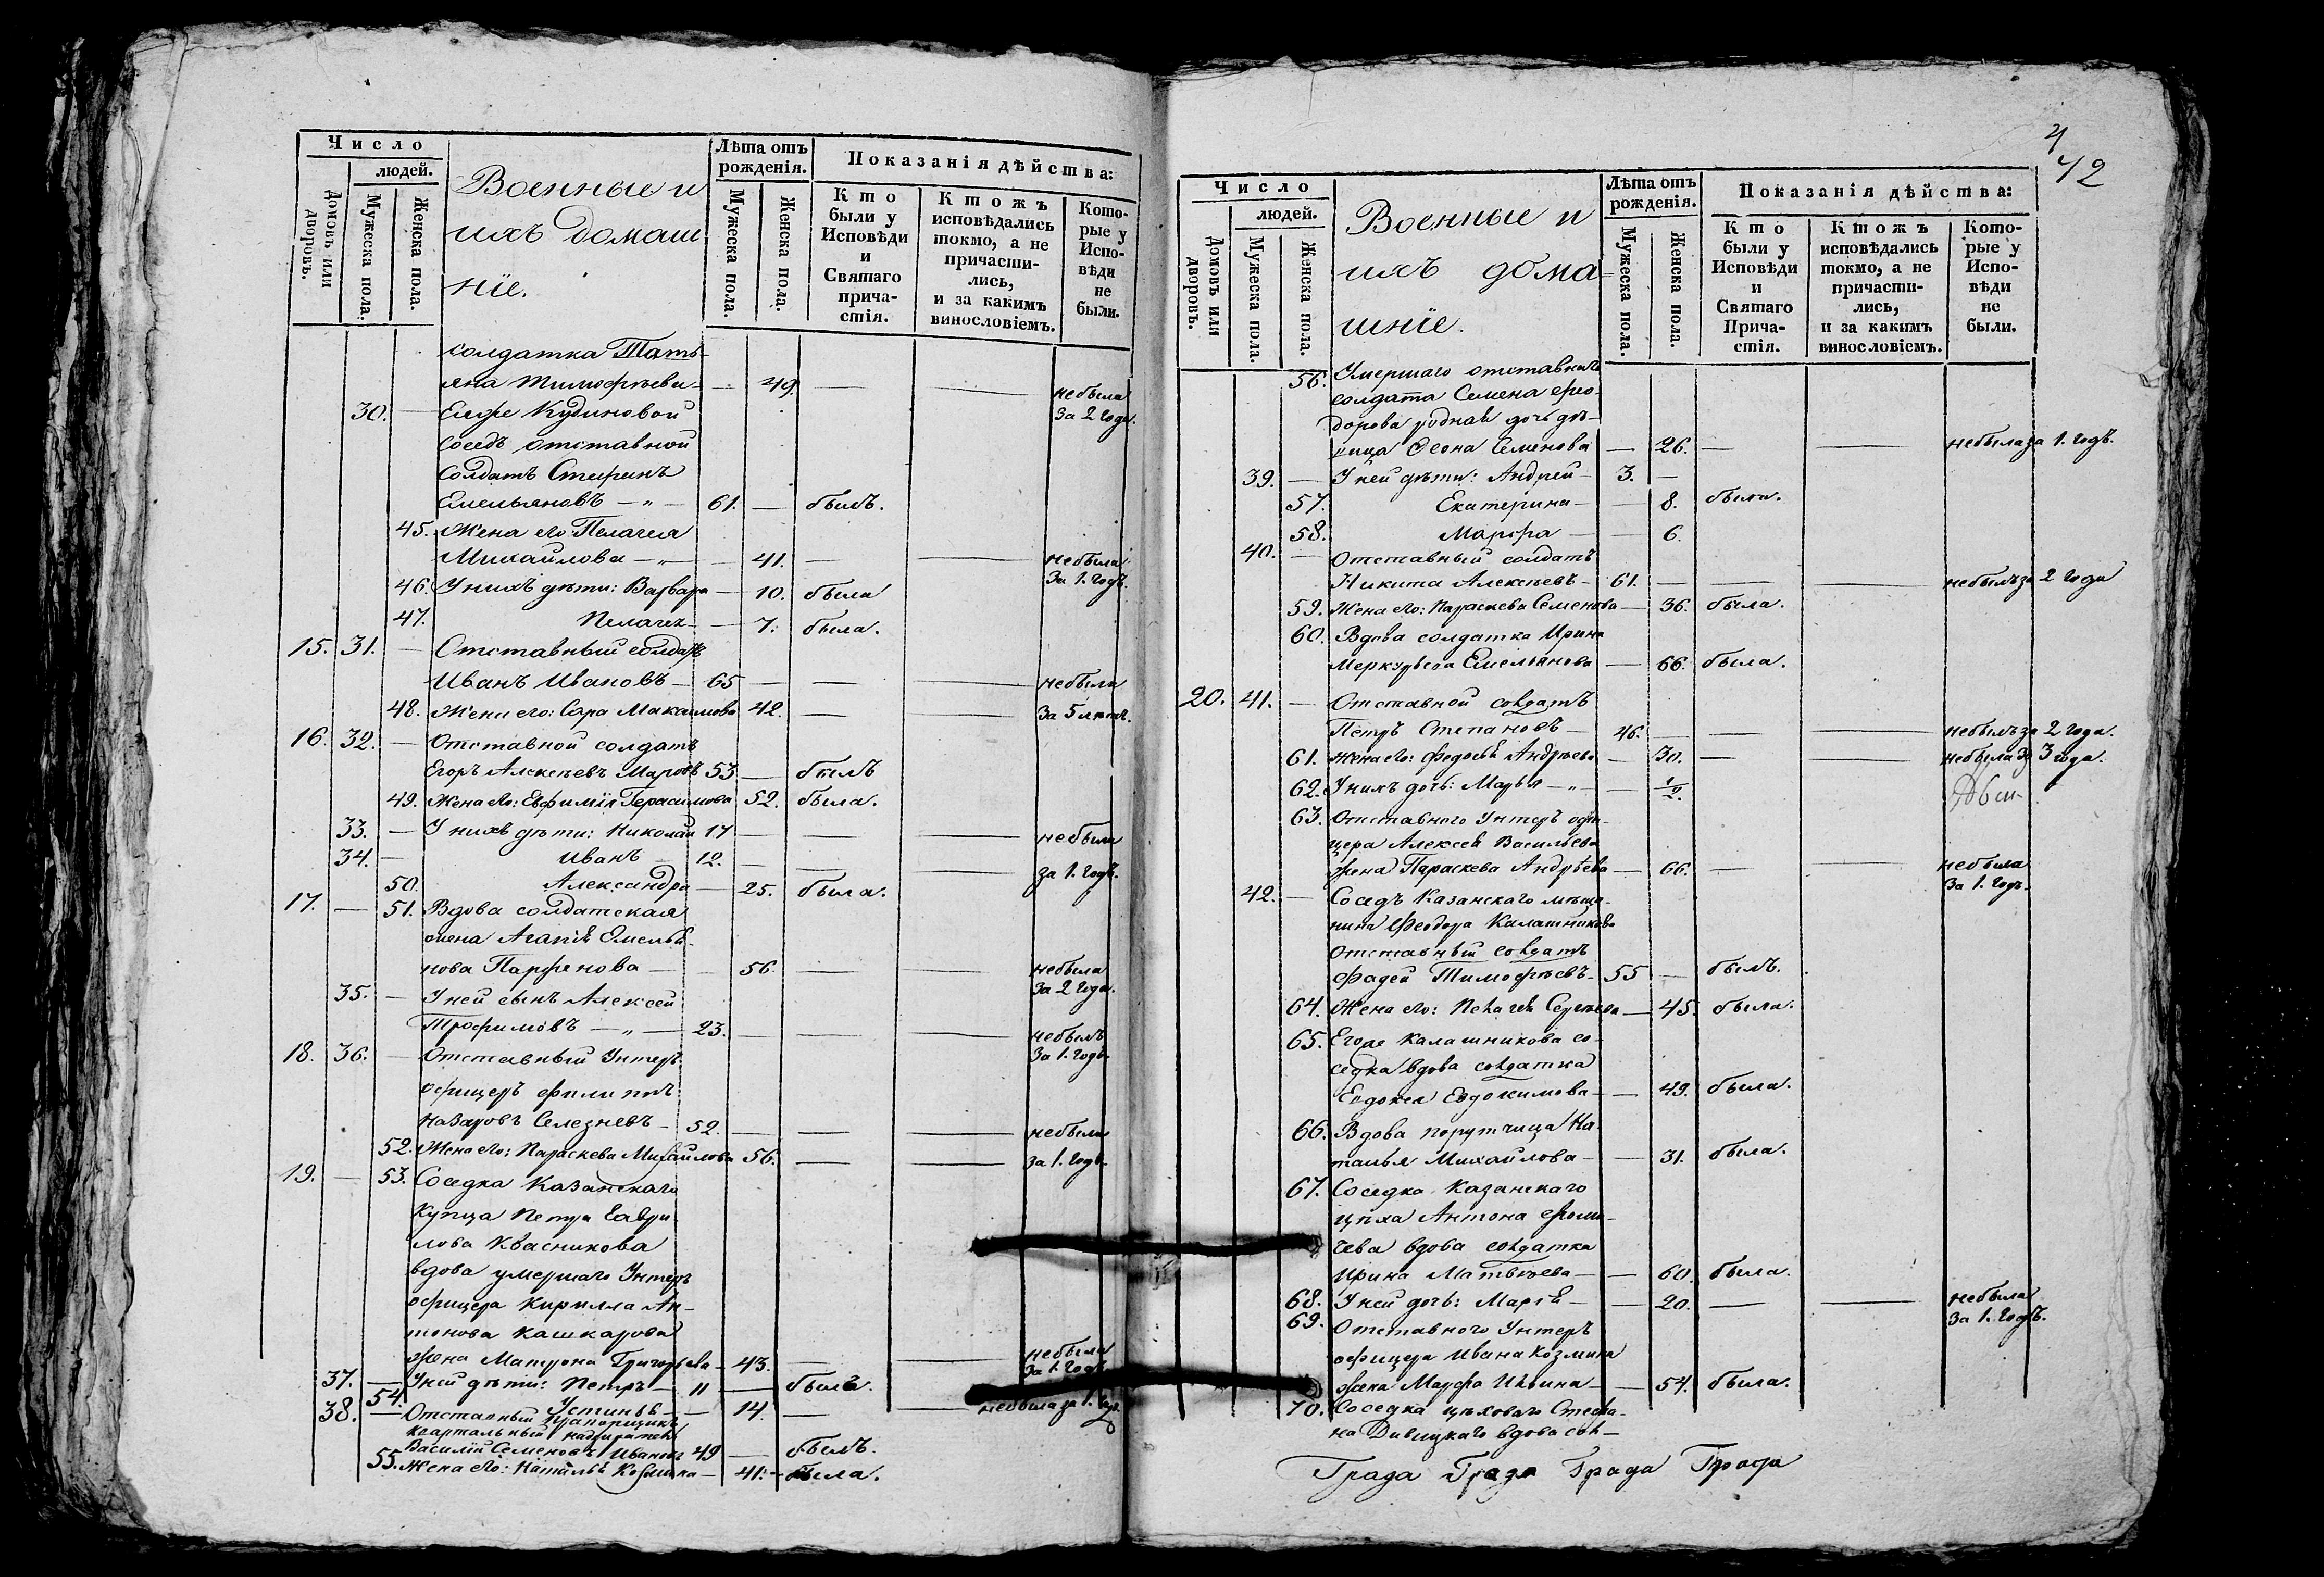 Число
людей.
Домовъ или дворовъ.
Мужеска пола.
Женска пола.
Военные и
ихъ домаш
ніе.
Лѣта отъ рожденія.
Мужеска пола.
Женска пола.
Показанія дѣйства:
Кто были у Исповѣди и Святаго причастія.
Ктожъ исповѣдались токмо, а не причастились, и за какимъ винословіемъ.
Которые у Исповѣди не были.
солдатка Тать-
яна Тимофѣева — 49. — — небыла
30. — Ея же Кудиновой за 2 года.
соседъ отставной
солдатъ
Емельяновъ — „ — 61. — былъ.
45. Жена его Пелагея
Михайлова — „ — 41. — — небыла
за 1. годъ.
46. У нихъ дѣти: Варвара — 10. была
47. Пелагея — 7. была.
15. 31. — Отставный солдатъ
Иванъ Ивановъ — 65 — — — небыли
48. Жена его: Сара Максимова 42. — — за 5 лѣтъ.
16. 32. — Отставной солдатъ
Егоръ Алексѣевъ 53. — былъ
49. Жена его: Евфимія Герасимова 52. была.
33. — У нихъ дѣти: Николай 17 — — — небыли
34. — Иванъ — 12. — — — за 1. годъ.
50. Александра — 25. была.
17. — 51. Вдова солдатская
жена Агапія Емелья-
нова Парфенова — — 56. — — небыла
за 2 года.
35. — У ней сынъ Алексей
Трофимовъ — „ — 23. — — — небылъ
за 1. годъ.
18. 36. — Отставный Унтеръ
офицеръ Филиппъ
Назаровъ Селезневъ — 52. — — — небыли
52. Жена его: Параскева Михайлова 56. — — за 1. годъ.
19. — 53. Соседка Казанскаго
купца Петра Гаври-
лова Квасникова
вдова умершаго Унтеръ
офицера Кирилла Ан-
тонова Кашкарова
жена Матрона Григорьева — 43. — — небыла
за 1. годъ.
37. — У ней дѣти: Петръ — 11 — былъ.
54. Устинья — — 14. — — небыла за 1. годъ.
38. — Отставный прапорщикъ
квартальный надзиратель
Василій Семеновъ Ивановъ 49 — былъ.
55. Жена его: Наталья Козмина — 41. — была.
4
42
Число
людей.
Домовъ или дворовъ.
Мужеска пола.
Женска пола.
Военные и
ихъ дома-
шніе.
Лѣта отъ рожденія.
Мужеска пола.
Женска пола.
Показанія дѣйства:
Кто были у Исповѣди и Святаго Причастія.
Ктожъ исповѣдались токмо, а не причастились, и за какимъ винословіемъ.
Которые у Исповѣди не были.
56. Умершаго отставнаго
солдата Семена Фео-
дорова родная дочь дѣ-
вица Семенова — 26. — — небыла за 1. годъ.
39. — У ней дѣти: Андрей — 3. —
57. Екатерина — — 8. была.
58. Марфа — — 6.
40. — Отставный солдатъ
Никита Алексѣевъ — 61. — — — небылъ за 2 года
59. Жена его: Параскева Семенова — 36. была.
60. Вдова солдатка Ирина
Меркурьева Емельянова — 66. была.
20. 41. — Отставной солдатъ
Петръ Степановъ — 46. — — — небылъ за 2 года.
61. Жена его: Федосья Андреева — 30. — — небыла за 3 года.
62. У нихъ дочь: Марья — „ — — 1/2.
63. Отставнаго Унтеръ офи-
цера Алексея Васильева
жена Параскева Андрѣева — 66. — — небыла
за 1. годъ.
42. — Соседъ Казанскаго мѣща-
нина Феодора Калашникова
отставный солдатъ
Фадей Тимофѣевъ — 55 — былъ.
64. Жена его: Пелагея Сергѣева — 45. была.
65. Егоже Калашникова со-
седка вдова солдатка
Евдокея Евдокимова — — 49. была.
66. Вдова порутчица На-
талья Михайлова — — 31. была.
67. Соседка Казанскаго
цѣха Антона Фоми-
чева вдова солдатка
Ирина Матвѣева — — 60. была.
68. У ней дочь: Марья — — 20. — — небыла
за 1. годъ.
69. Отставнаго Унтеръ
офицера Ивана Козмина
жена Марфа Ильина — — 54. была.
70. Соседка цѣховаго Стефа-
на вдова сол-
Града Града Града Града